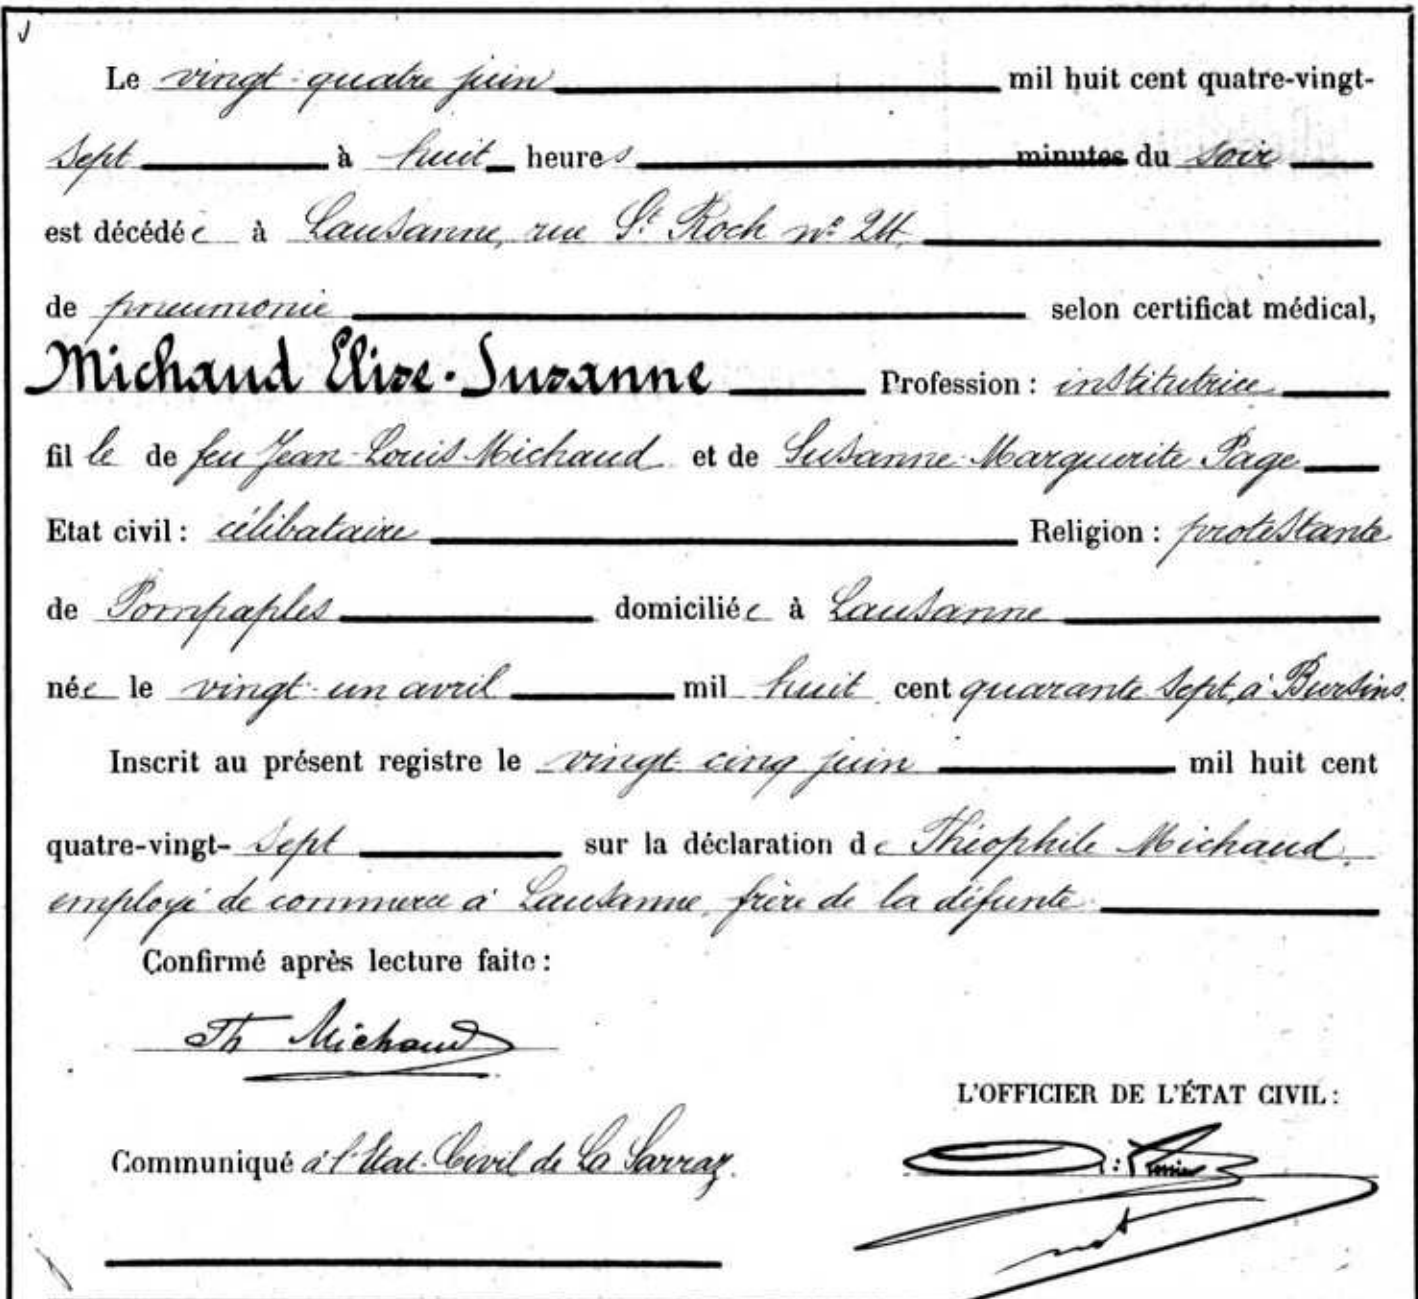 Le vingt-quatre juin mil huit cent quatre-vingt-
sept à huit heures minutes du soir
est décédée à Lausanne, rue St Roch no 24
de pneumonie selon certificat médical,
Michaud Elise-Suzanne Profession : institutrice
fille de feu Jean-Louis Michaud et de Susanne-Marguerite Page
Etat civil : célibataire Religion : protestante
de Pompaples domiciliée à Lausanne
née le vingt-un avril mil huit cent quarante sept, à Bursins.
Inscrit au présent registre le vingt-cinq juin mil huit cent
quatre-vingt-sept sur la déclaration de Théophile Michaud,
employé de commerce à Lausanne, frère de la défunte.
Confirmé après lecture faite :
Th Michaud
L'OFFICIER DE L'ÉTAT CIVIL :
Communiqué à l'Etat-Civil de La Sarraz.